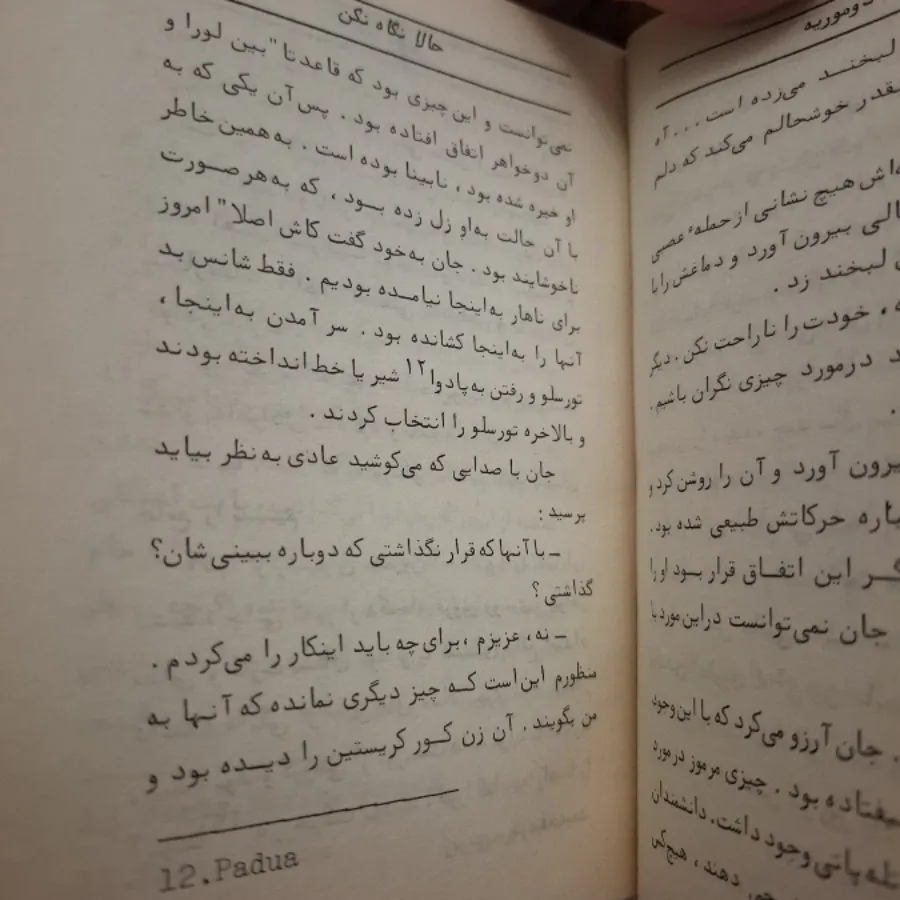 دوموریه
لبخند می‌زده است . . . آه
قدر خوشحالم می‌کند که دلم
اش هیچ نشانی از حملهٔ عصبی
بیرون آورد و دماغش را با
لبخند زد .
، خودت را ناراحت نکن . دیگر
درمورد چیزی نگران باشیم .
بیرون آورد و آن را روشن کرد و
حرکاتش طبیعی شده بود .
این اتفاق قرار بود او را
جان نمی‌توانست دراین مورد با
جان آرزو می‌کرد که با این وجود
نیفتاده بود . چیزی مرموز در مورد
وجود داشت . دانشمندان
دهند ، هیچ‌کی
حالا نگاه نکن
نمی‌توانست و این چیزی بود که قاعدتا" بین لورا و
آن دوخواهر اتفاق افتاده بود . پس آن یکی که به
او خیره شده بود ، نابینا بوده است . به همین خاطر
با آن حالت به‌او زل زده بود ، که به‌هر صورت
ناخوشایند بود . جان به‌خود گفت کاش اصلا" امروز
برای ناهار به‌اینجا نیامده بودیم . فقط شانس بد
آنها را به‌اینجا کشانده بود . سر آمدن به‌اینجا ،
تورسلو و رفتن به‌پادوا۱۲ شیر یا خط انداخته بودند
و بالاخره تورسلو را انتخاب کردند .
جان با صدایی که می‌کوشید عادی به‌نظر بیاید
پرسید :
ــ با آنها که قرار نگذاشتی که دوباره ببینی‌شان؟
گذاشتی؟
ــ نه ، عزیزم ، برای چه باید اینکار را می‌کردم .
منظورم این‌است که چیز دیگری نمانده که آنها به
من بگویند . آن زن کور کریستین را دیده بود و
12.Padua